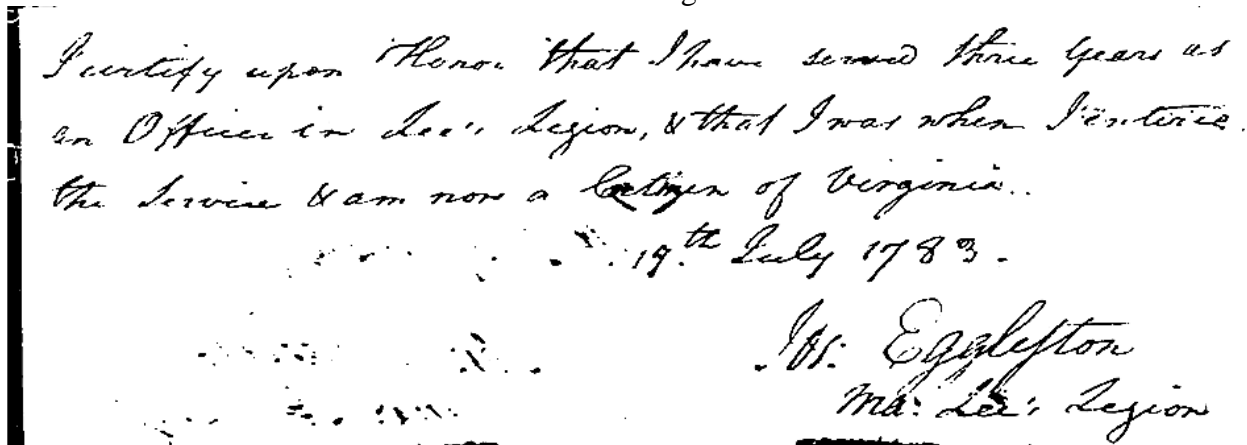 I certify upon Honor that I have served three years as
an Officer in Lee's Legion, & that I was when I entered
the Service & am now a Citizen of Virginia.
19th July 1783.
Jos: Eggleston
Ma: Lee's Legion